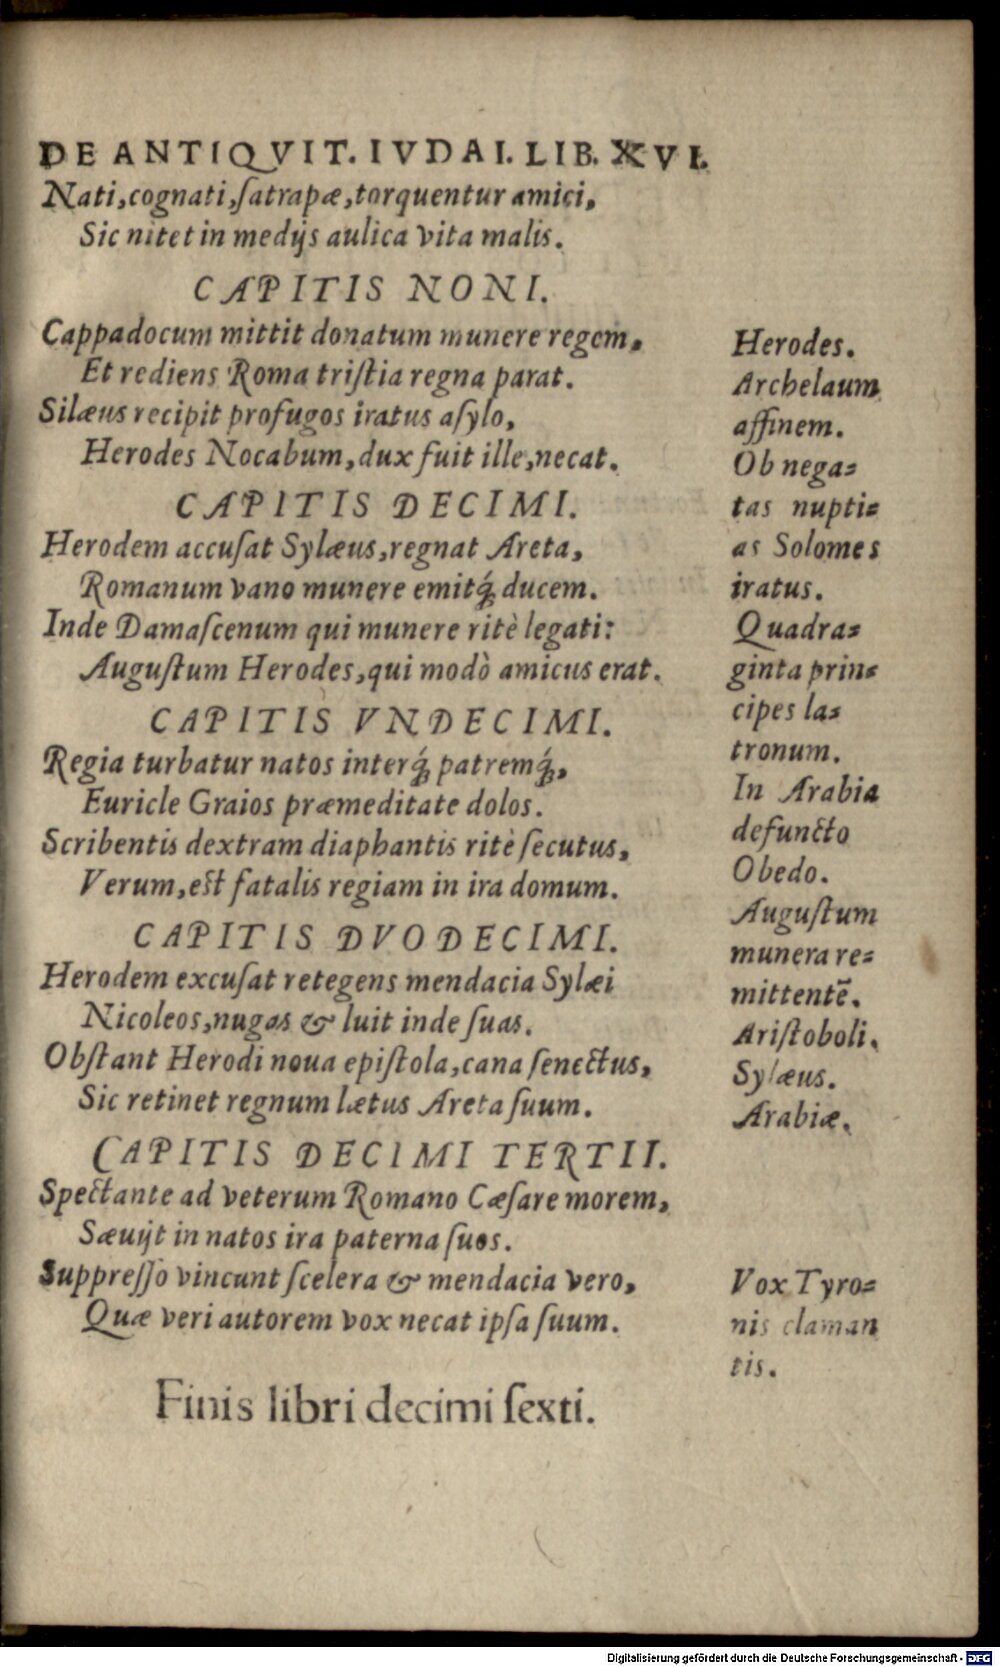 DE ANTIQVIT. IVDAI. LIB. XVI.
Nati, cognati, ſatrapæ, torquentur amici,
Sic nitet in medijs aulica vita malis.
CAPITIS NONI.
Cappadocum mittit donatum munere regem,
Et rediens Roma triſtia regna parat.
Silæus recipit profugos iratus aſylo,
Herodes Nocabum, dux fuit ille, necat.
CAPITIS DECIMI.
Herodem accuſat Sylæus, regnat Areta,
Romanum vano munere emitq́ꝫ ducem.
Inde Damaſcenum qui munere ritè legati:
Auguſtum Herodes, qui modò amicus erat.
CAPITIS VNDECIMI.
Regia turbatur natos interq́ꝫ patremq́ꝫ,
Euricle Graios præmeditate dolos.
Scribentis dextram diaphantis ritè ſecutus,
Verum, eſt fatalis regiam in ira domum.
CAPITIS DVODECIMI.
Herodem excuſat retegens mendacia Sylæi
Nicoleos, nugas & luit inde ſuas.
Obſtant Herodi noua epiſtola, cana ſenectus,
Sic retinet regnum lætus Areta ſuum.
CAPITIS DECIMI TERTII.
Spectante ad veterum Romano Cæſare morem,
Sæuijt in natos ira paterna ſuos.
Suppreſſo vincunt ſcelera & mendacia vero,
Quæ veri autorem vox necat ipſa ſuum.
Finis libri decimi ſexti.
Herodes.
Archelaum
affinem.
Ob nega=
tas nupti=
as Solomes
iratus.
Quadra=
ginta prin=
cipes la=
tronum.
In Arabia
defuncto
Obedo.
Auguſtum
munera re=
mittentē.
Ariſtoboli.
Sylæus.
Arabiæ.
Vox Tyro=
nis claman
tis.
Digitalisierung gefördert durch die Deutsche Forschungsgemeinschaft - DFG